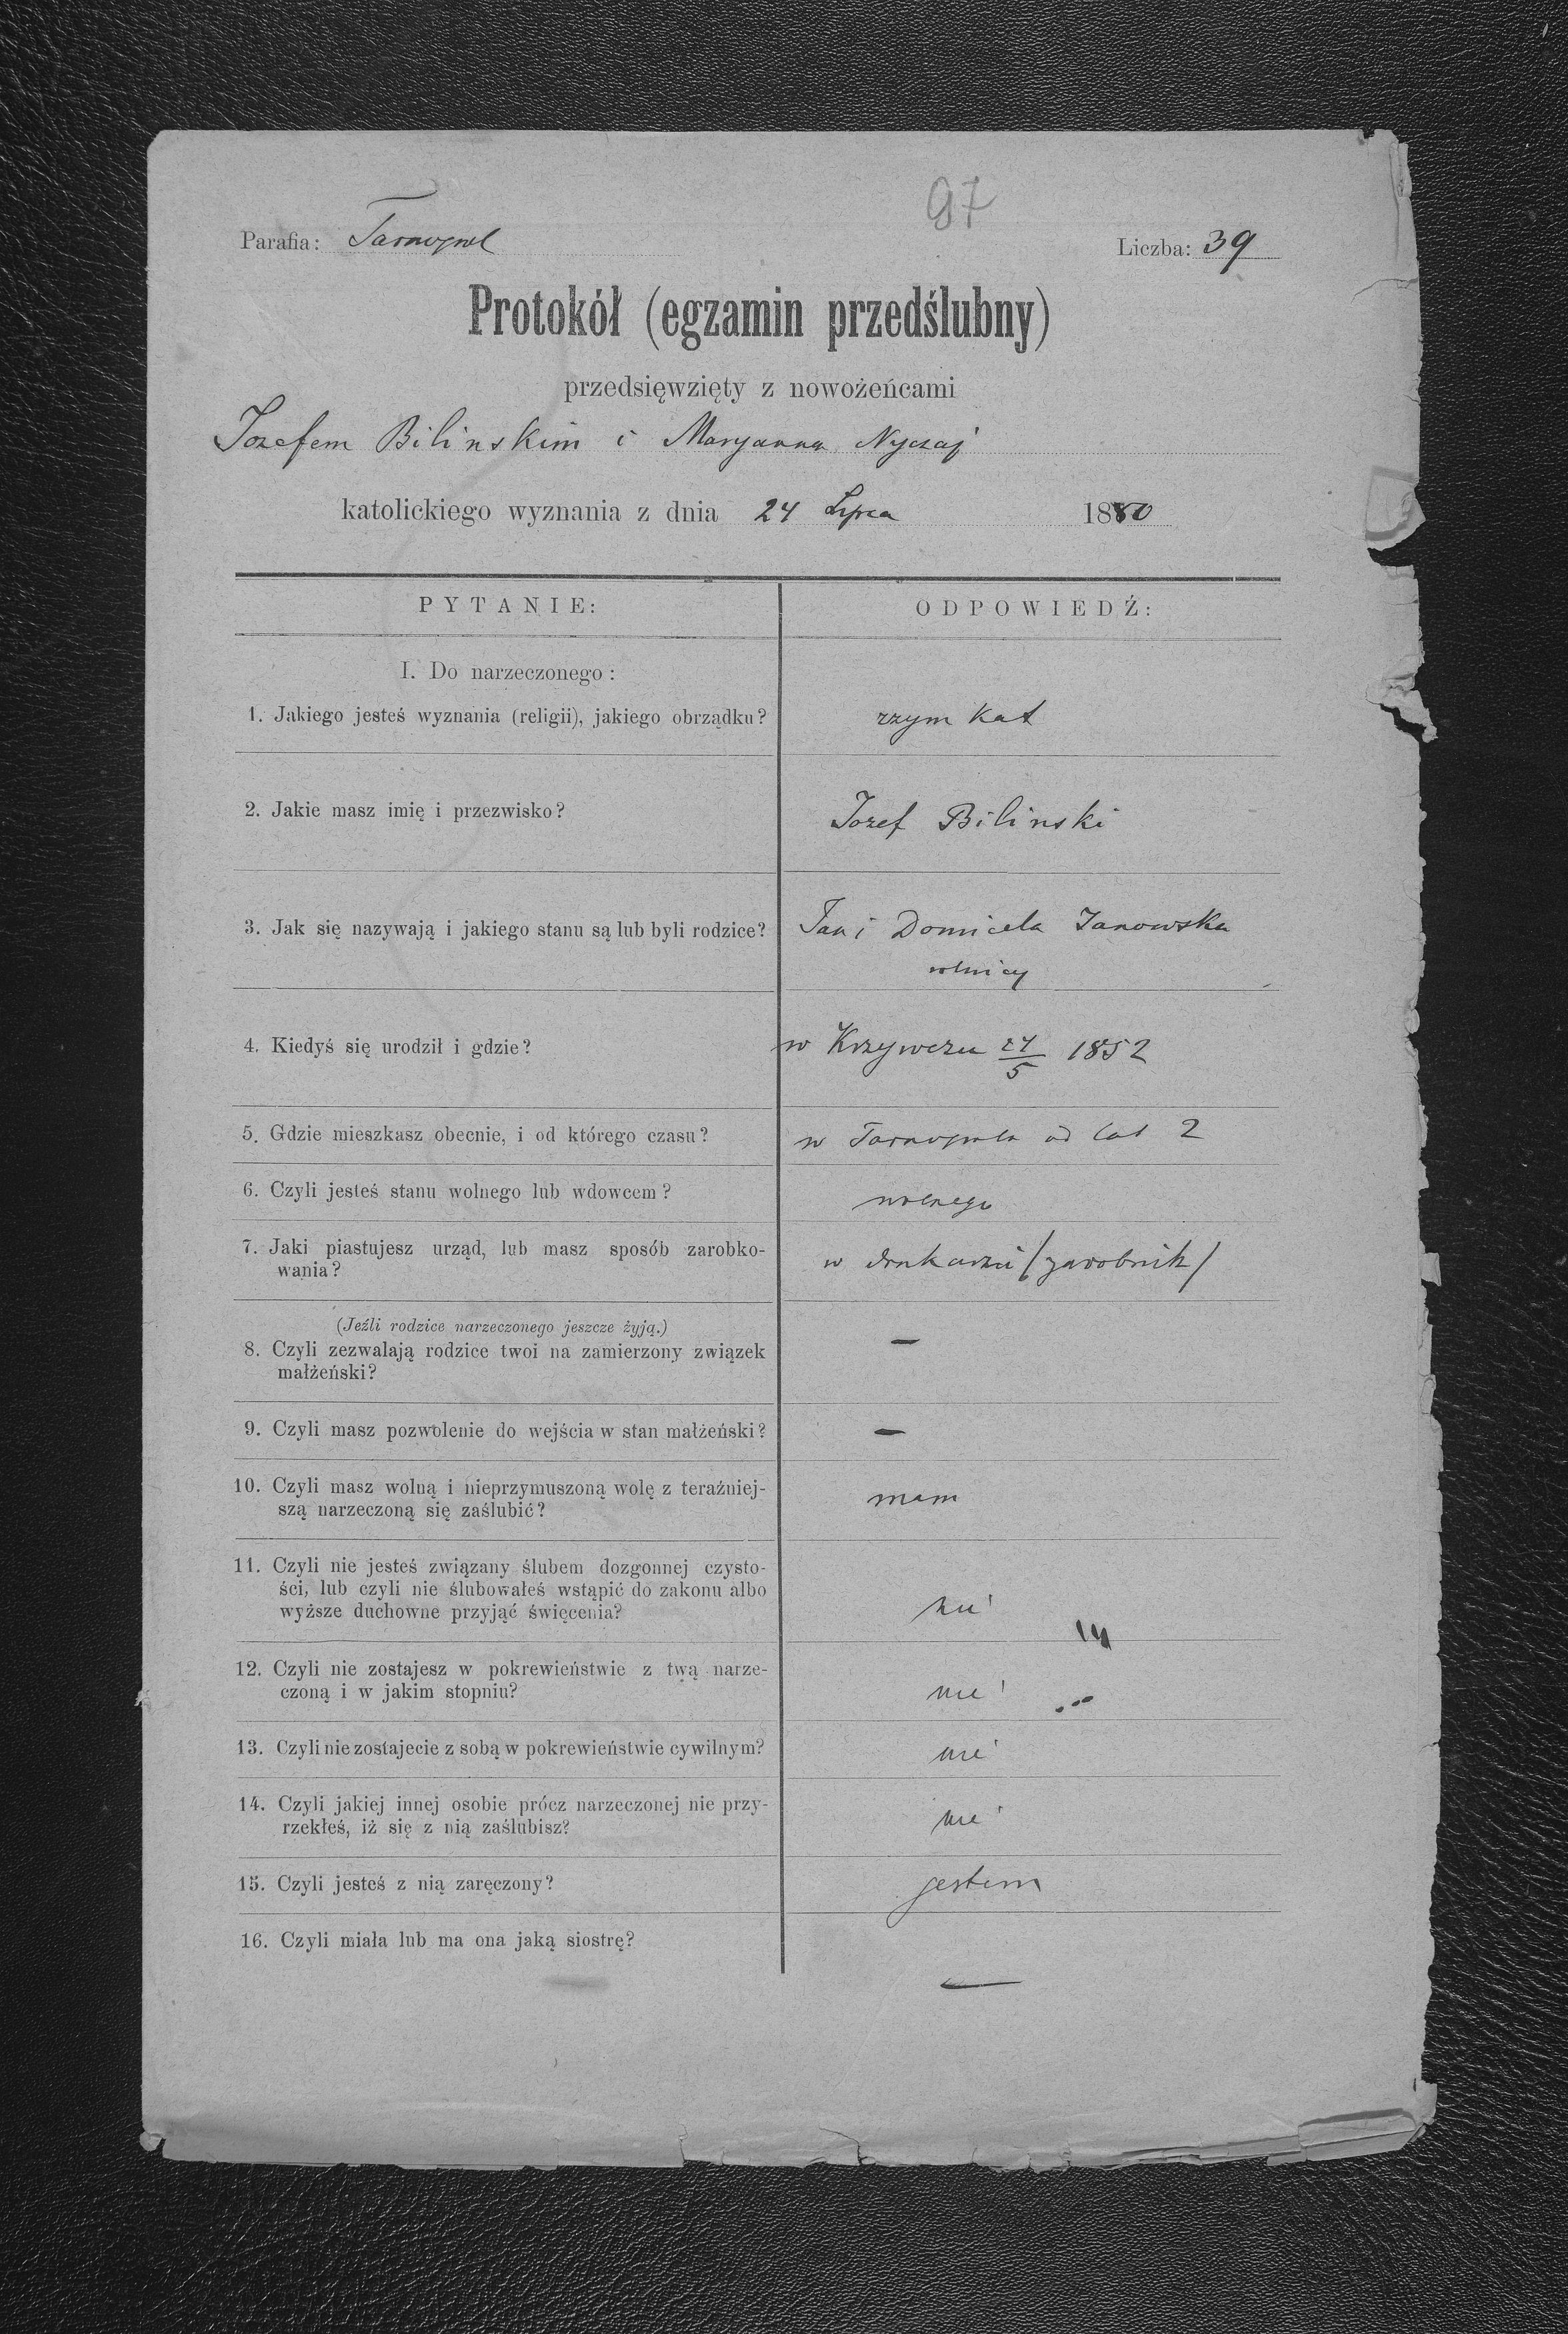 97
Parafia: Tarnopol
Liczba: 39
Protokół (egzamin przedślubny)
przedsięwzięty z nowożeńcami
Jozefem Bilinskim i Maryanna Nyczaj
katolickiego wyznania z dnia 24 Lipca 1880
PYTANIE:
ODPOWIEDŹ:
I. Do narzeczonego:
1. Jakiego jesteś wyznania (religii), jakiego obrządku?
rzym kat
2. Jakie masz imię i przezwisko?
Jozef Bilinski
3. Jak się nazywają i jakiego stanu są lub byli rodzice?
Jan i Domicela Janowska
rolnicy
4. Kiedyś się urodził i gdzie?
w Krzywczu 24/5 1852
5. Gdzie mieszkasz obecnie, i od którego czasu?
w Tarnopolu od lat 2
6. Czyli jesteś stanu wolnego lub wdowcem?
wolnego
7. Jaki piastujesz urząd, lub masz sposób zarobko-
wania?
w /zarobnik/
(Jeźli rodzice narzeczonego jeszcze żyją.)
8. Czyli zezwalają rodzice twoi na zamierzony związek
małżeński?
—
9. Czyli masz pozwolenie do wejścia w stan małżeński?
—
10. Czyli masz wolną i nieprzymuszoną wolę z teraźniej-
szą narzeczoną się zaślubić?
mam
11. Czyli nie jesteś związany ślubem dozgonnej czysto-
ści, lub czyli nie ślubowałeś wstąpić do zakonu albo
wyższe duchowne przyjąć święcenia?
nie
12. Czyli nie zostajesz w pokrewieństwie z twą narze-
czoną i w jakim stopniu?
nie
13. Czyli nie zostajecie z sobą w pokrewieństwie cywilnym?
nie
14. Czyli jakiej innej osobie prócz narzeczonej nie przy-
rzekłeś, iż się z nią zaślubisz?
nie
15. Czyli jesteś z nią zaręczony?
jestem
16. Czyli miała lub ma ona jaką siostrę?
—